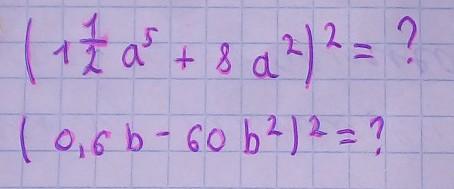 (1 1/2 a⁵ + 8 a²)² = ?
(0,6 b - 60 b²)² = ?